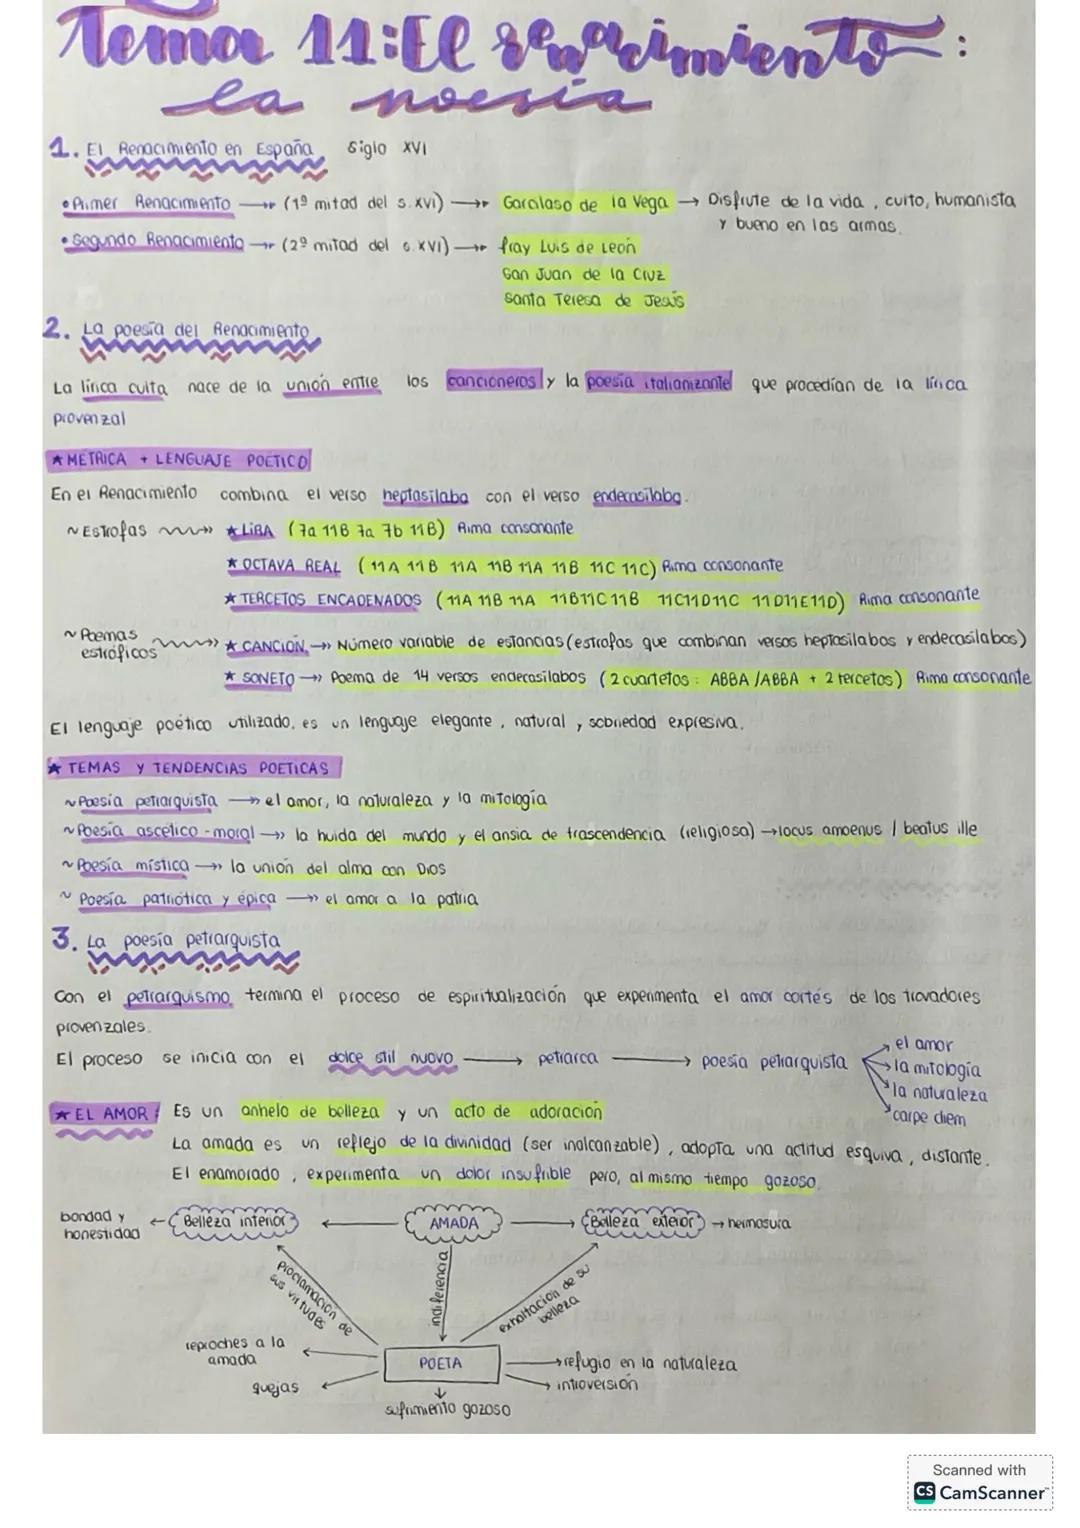 Tema 11: El renacimiento:
la poesía
1. El Renacimiento en España Siglo XVI
• Primer Renacimiento → (1ª mitad del s. XVI) → Garcilaso de la Vega → Disfrute de la vida, culto, humanista
y bueno en las armas.
• Segundo Renacimiento → (2ª mitad del s. XVI) → fray Luis de León
San Juan de la Cruz
Santa Teresa de Jesús
2. La poesía del Renacimiento
La lírica culta nace de la unión entre los cancioneros y la poesía italianizante que procedían de la lírica
provenzal
★ METRICA + LENGUAJE POÉTICO
En el Renacimiento combina el verso heptasílabo con el verso endecasílabo.
~ Estrofas → ★ LIRA (7a 11B 7a 7b 11B) Rima consonante
★ OCTAVA REAL (11A 11B 11A 11B 11A 11B 11C 11C) Rima consonante
★ TERCETOS ENCADENADOS (11A 11B 11A 11B11C11B 11C11D11C 11D11E11D) Rima consonante
~ Poemas
estróficos → ★ CANCIÓN → Número variable de estancias (estrofas que combinan versos heptasílabos y endecasílabos)
★ SONETO → Poema de 14 versos endecasílabos (2 cuartetos: ABBA/ABBA + 2 tercetos) Rima consonante
El lenguaje poético utilizado, es un lenguaje elegante, natural, sobriedad expresiva.
★ TEMAS Y TENDENCIAS POETICAS
~ Poesía petrarquista → el amor, la naturaleza y la mitología
~ Poesía ascético-moral → la huida del mundo y el ansia de trascendencia (religiosa) → locus amoenus / beatus ille
~ Poesía mística → la unión del alma con Dios
~ Poesía patriótica y épica → el amor a la patria
3. La poesía petrarquista
Con el petrarquismo termina el proceso de espiritualización que experimenta el amor cortés de los trovadores
provenzales.
El proceso se inicia con el dolce stil nuovo → petrarca → poesía petrarquista
el amor
la mitología
la naturaleza
carpe diem
★ EL AMOR: Es un anhelo de belleza y un acto de adoración
La amada es un reflejo de la divinidad (ser inalcanzable), adopta una actitud esquiva, distante.
El enamorado, experimenta un dolor insufrible pero, al mismo tiempo gozoso.
bondad y
honestidad ← Belleza interior ← AMADA → Belleza exterior → hermosura
Proclamación de
sus virtudes
indiferencia
exaltación de su
belleza
reproches a la
amada
quejas
POETA
refugio en la naturaleza
introversión
sufrimiento gozoso
Scanned with
CS CamScanner